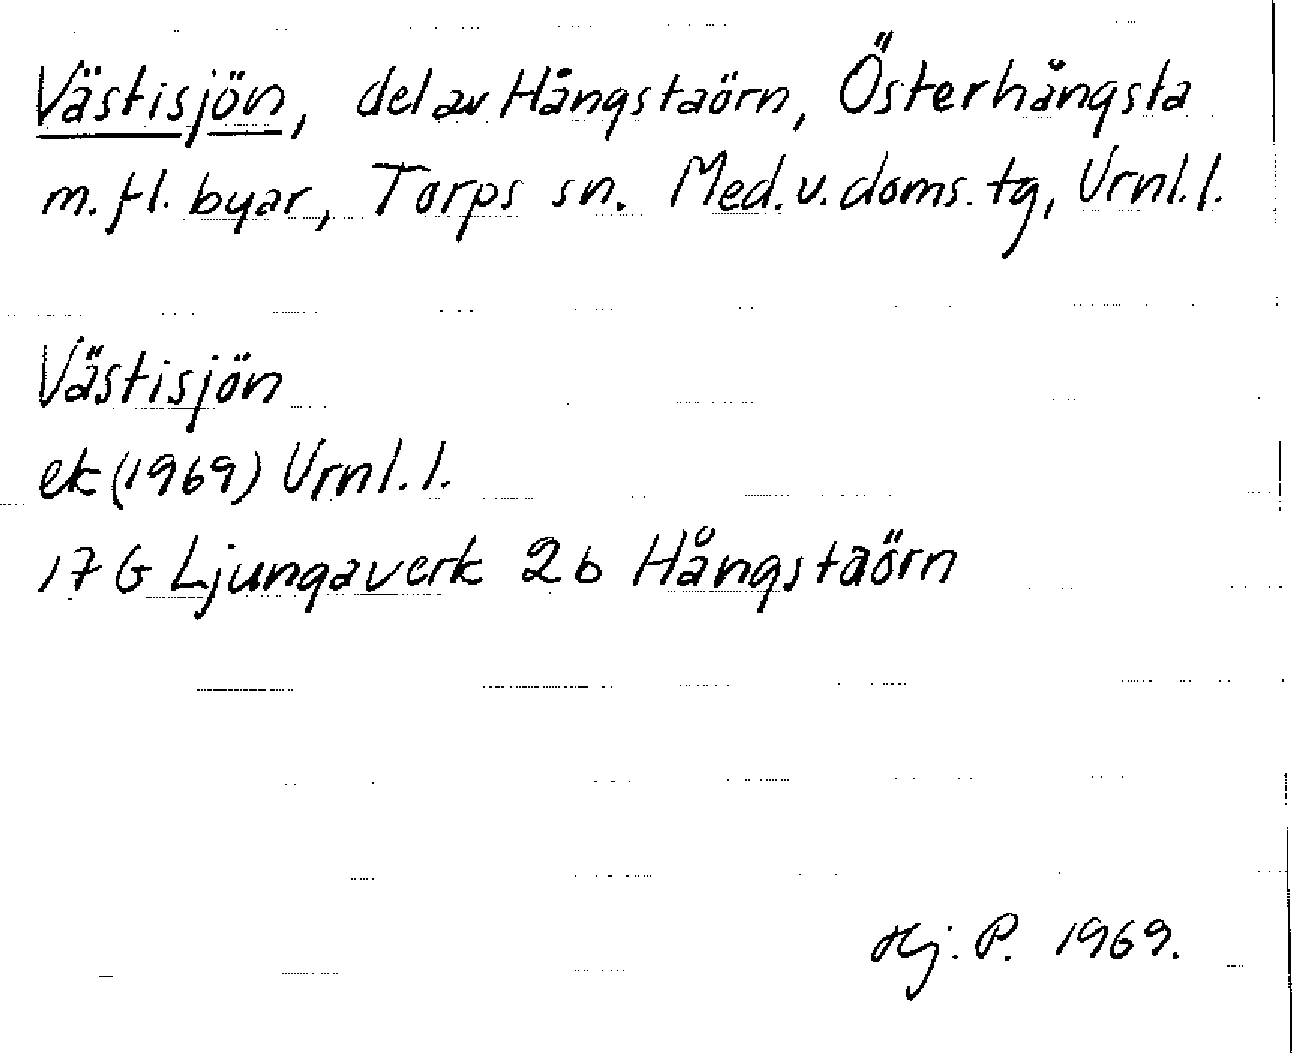 Västisjön, del av Hångstaörn, Österhångsta
m. fl. byar, Torps sn. Med. v. doms. tg, Vrnl. l.
Västisjön
ek (1969) Vrnl. l.
17 G Ljungaverk 2b Hångstaörn
Hj. P. 1969.